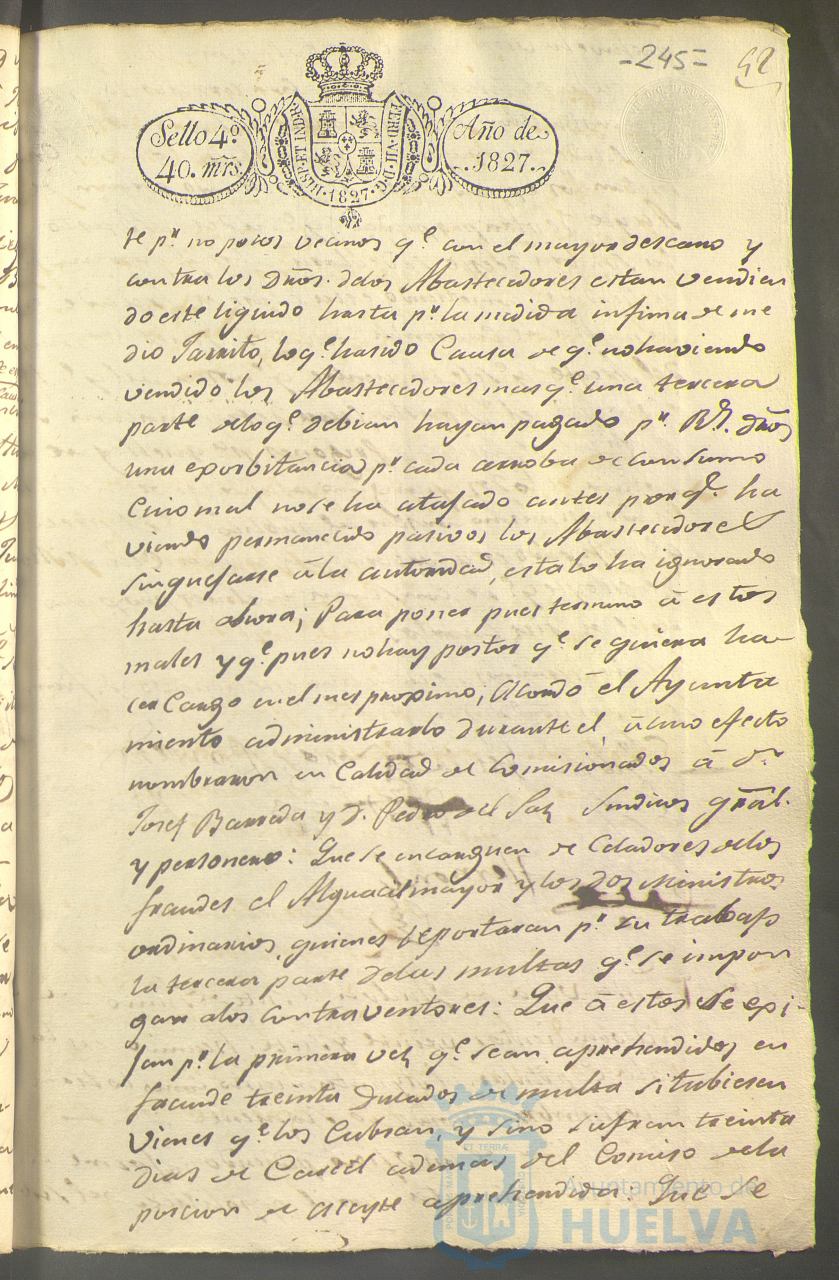 -245=
42
Sello 4º
40. mrs.
HISP. ET IND. R.
FERD. VII. D. G.
1827
Año de
1827.
te pr. no pocos vecinos qe. con el mayor descaro y
contra los Dros. de los Abastecedores estan vendien
do este liquido hasta pr. la medida infima de me
dio Jarrito, lo qe. ha sido Causa de qe. no haviendo
vendido los Abastecedores mas qe. una tercera
parte de lo qe. debian hayan pagado pr. Rs. dros
una exorbitancia pr. cada arroba de consumo
Cuio mal no se ha atajado antes porqe. ha
viendo permanecido pasivos los Abastecedores
sin quejarse á la autoridad, esta lo ha ignorado
hasta ahora; Para poner pues termino á estos
males y qe. pues no hay postor qe. se quiera ha-
cer Cargo en el mes proximo; Acordó el Ayunta
miento administrarlo durante el, á cuio efecto
nombraron en Calidad de Comisionados á Dn.
Josef Barreda y D. Pedro del Sol Sindicos gral.
y personero: Que se encarguen de Celadores de los
fraudes el Alguacil mayor y los dos Ministros
ordinarios, quienes reportaran pr. su trabajo
la tercera parte de las multas qe. se impon
gan a los contraventores: Que á estos se exi-
jan pr. la primera vez qe. sean aprehendidos en
fraude treinta Ducados de multa si tubiesen
Vienes qe. los Cubran, y sino sufran treinta
dias de Carcel ademas del Comiso de la
porcion de aceyte aprehendida: Que se
Ayuntamiento de
HUELVA